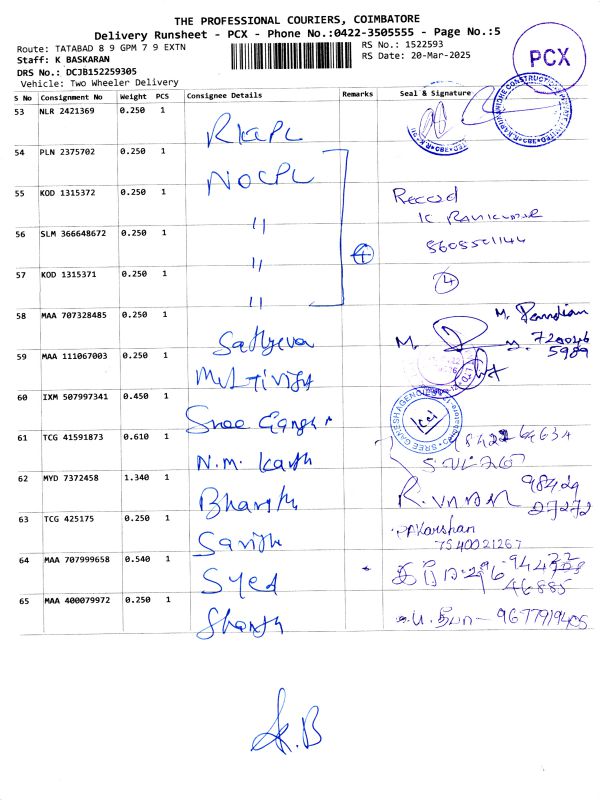 THE PROFESSIONAL COURIERS, COIMBATORE
Delivery Runsheet - PCX - Phone No.:0422-3505555 - Page No.:5
Route: TATABAD 8 9 GPM 7 9 EXTN
RS No.: 1522593
Staff: K BASKARAN
RS Date: 20-Mar-2025
DRS No.: DCJB152259305
Vehicle: Two Wheeler Delivery
PCX
S No Consignment No Weight PCS Consignee Details Remarks Seal & Signature
53 NLR 2421369 0.250 1 RKCPL
54 PLN 2375702 0.250 1 NOCPL
55 KOD 1315372 0.250 1 " Record
K RAVIKUMAR
56 SLM 366648672 0.250 1 " 4 5608501144
57 KOD 1315371 0.250 1 " 4
58 MAA 707328485 0.250 1 Sathyeva M. Pandian
59 MAA 111067003 0.250 1 720046
5989
60 IXM 507997341 0.450 1 Sree Ganesh SREE GANESH AGENCIES
61 TCG 41591873 0.610 1 N.m. Karth
62 MYD 7372458 1.340 1 Bharath 98429
27272
63 TCG 425175 0.250 1
7540021267
64 MAA 707999658 0.540 1 Syed
46885
65 MAA 400079972 0.250 1 தீபா - 9677919405
K.B